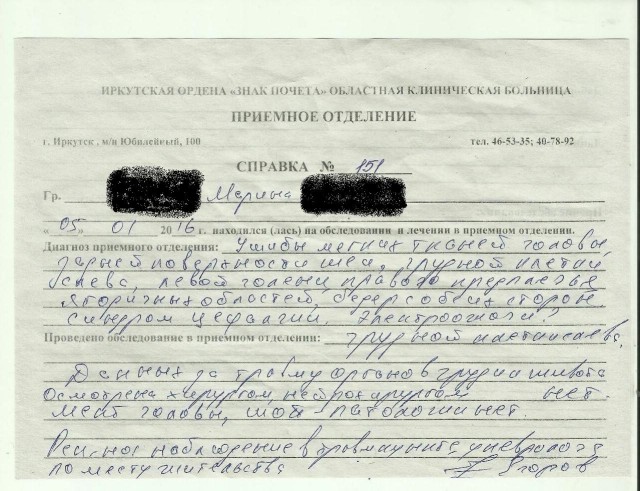 ИРКУТСКАЯ ОРДЕНА «ЗНАК ПОЧЕТА» ОБЛАСТНАЯ КЛИНИЧЕСКАЯ БОЛЬНИЦА
ПРИЕМНОЕ ОТДЕЛЕНИЕ
г. Иркутск, м/н Юбилейный, 100 тел. 46-53-35; 40-78-92
СПРАВКА № 151
Гр. Марина
« 05 » 01 2016 г. находился (лась) на обследовании и лечении в приемном отделении.
Диагноз приемного отделения: Ушибы мягких тканей головы,
задней поверхности шеи, грудной клетки
слева, левой голени, правого предплечья
ягодичных областей, бедер с обеих сторон.
Синдром цефалгии. Электроожоги?
Проведено обследование в приемном отделении: грудной клетки слева.
Данных за травму органов груди и живота
осмотрена хирургом, нейрохирургом нет.
МСКТ головы, шои - патологии нет.
наблюдение в травмпункте, у невролога
по месту жительства Егоров